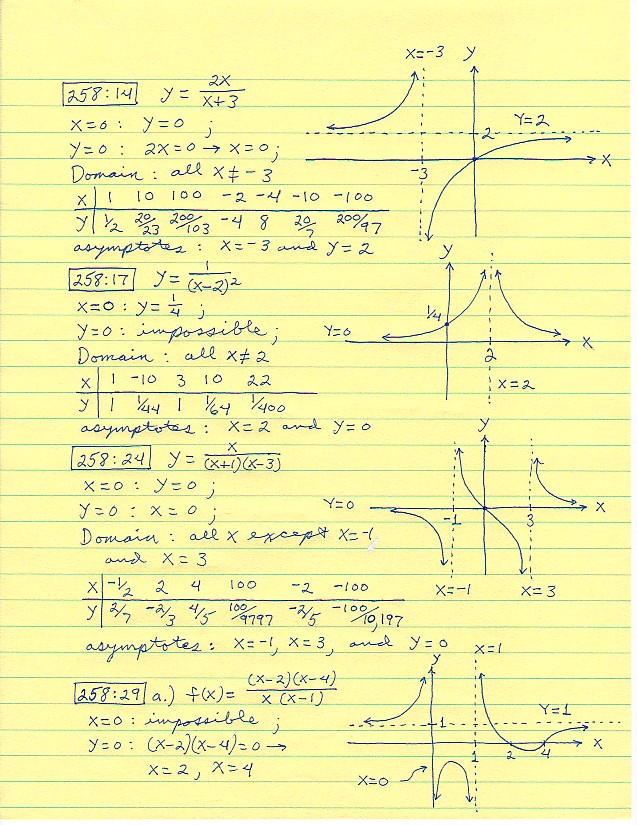 258:14 y = 2x/(x+3)
x=0 : y=0 ;
y=0 : 2x=0 → x=0 ;
Domain : all x ≠ -3
x | 1 10 100 -2 -4 -10 -100
y | 1/2 20/23 200/103 -4 8 20/7 200/97
asymptotes : x=-3 and y=2
x=-3 y
y=2
2
-3
x
258:17 y = 1/(x-2)²
x=0 : y=1/4 ;
y=0 : impossible ;
Domain : all x ≠ 2
x | 1 -10 3 10 22
y | 1 1/144 1 1/64 1/400
asymptotes : x=2 and y=0
y
1/4
y=0
x
2
x=2
258:24 y = x/((x+1)(x-3))
x=0 : y=0 ;
y=0 : x=0 ;
Domain : all x except x=-1
and x=3
x | -1/2 2 4 100 -2 -100
y | 2/7 -2/3 4/5 100/9797 -2/5 -100/10,197
asymptotes : x=-1, x=3, and y=0
y
y=0
x
-1 3
x=-1 x=3
258:29 a.) f(x) = (x-2)(x-4)/(x(x-1))
x=0 : impossible ;
y=0 : (x-2)(x-4)=0 →
x=2, x=4
y x=1
y=1
1
x
1 2 4
x=0